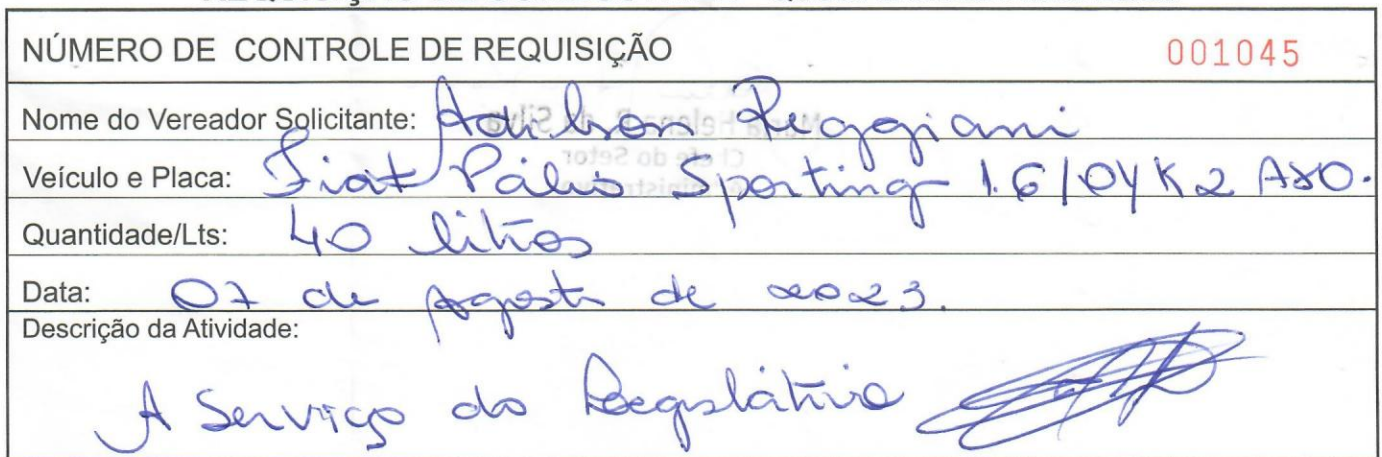 NÚMERO DE CONTROLE DE REQUISIÇÃO 001045
Nome do Vereador Solicitante: Adilson Reggiani
Veículo e Placa: Fiat Pálio Sporting 1.6/OYK2A80.
Quantidade/Lts: 40 litros
Data: 07 de Agosto de 2023.
Descrição da Atividade:
A Serviço do Legislativo